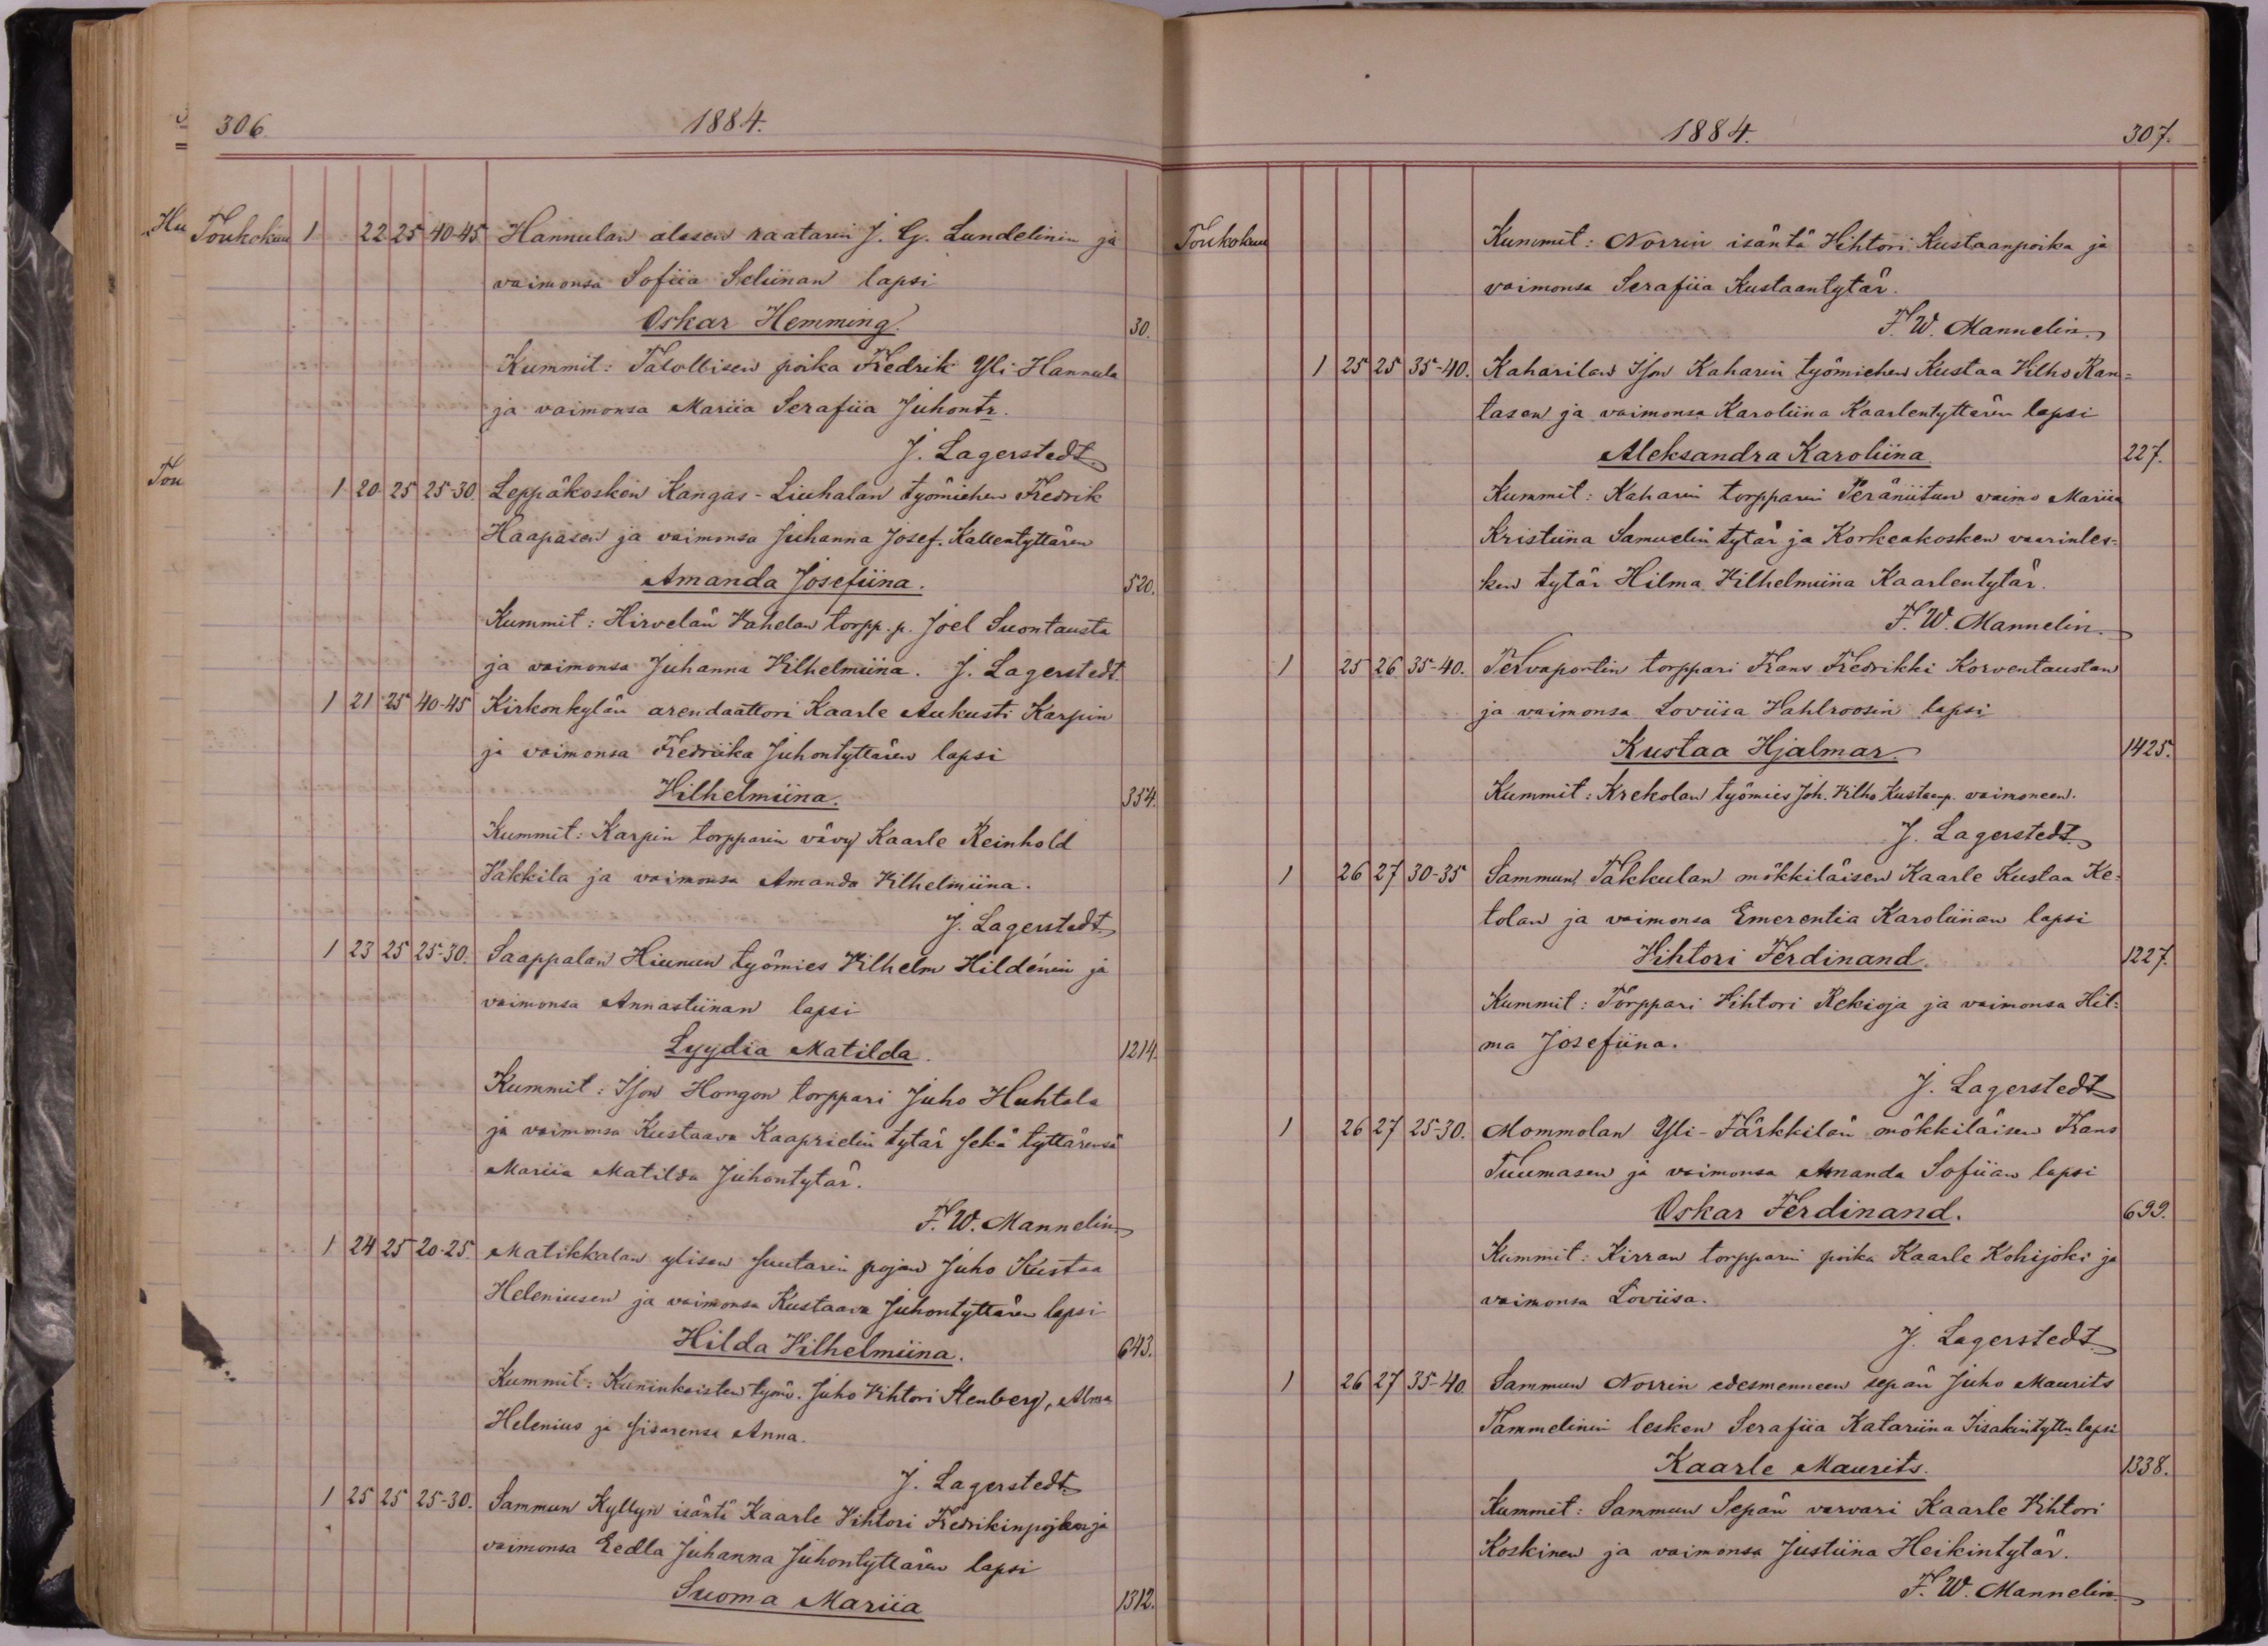 306
1884.
Toukokuu 1 22 25 40-45 Hannulan alasen raatarin J. G. Lundelinin ja
vaimonsa Sofiia Seliinan lapsi
Oskar Hemming. 30.
Kummit: Talollisen poika Fredrik Yli-Hannula
ja vaimonsa Mariia Serafiia Juhontr.
J. Lagerstedt
1 20 25 25-30. Leppäkosken Kangas-Liuhalan työmiehen Fredrik
Haapasen ja vaimonsa Juhanna Josef. Kallentyttären
Amanda Josefiina. 520.
Kummit: Hirvelän Vahelan torpp. p. Joel Suontausta
ja vaimonsa Juhanna Vilhelmiina. J. Lagerstedt
1 21 25 40-45 Kirkonkylän arendaattori Kaarle Aukusti Karpin
ja vaimonsa Fredriika Juhontyttären lapsi
Vilhelmiina. 354.
Kummit: Karpin torpparin vävy Kaarle Reinhold
Vakkila ja vaimonsa Amanda Vilhelmiina.
J. Lagerstedt
1 23 25 25-30. Saappalan Hiunun työmies Vilhelm Hildénin ja
vaimonsa Annastiinan lapsi
Lyydia Matilda. 1214.
Kummit: Ison Hongon torppari Juho Huhtala
ja vaimonsa Kustaava Kaaprielin tytär sekä tyttärensä
Mariia Matilda Juhontytär.
F. W. Mannelin
1 24 25 20-25. Matikkalan ylisen suutarin pojan Juho Kustaa
Heleniusen ja vaimonsa Kustaava Juhontyttären lapsi
Hilda Vilhelmiina. 643.
Kummit: Kuninkaisten työm. Juho Vihtori Stenberg, Alma
Helenius ja sisarensa Anna.
J. Lagerstedt
1 25 25 25-30. Sammun Kyllyn isäntä Kaarle Vihtori Fredrikinpojan ja
vaimonsa Eedla Juhanna Juhontyttären lapsi
Suoma Mariia 1312.
1884.
307.
Toukokuu Kummit: Norrin isäntä Vihtori Kustaanpoika ja
vaimonsa Serafiia Kustaantytär.
F. W. Mannelin
1 25 25 35-40. Kaharilan Ison Kaharin työmiehen Kustaa Vilho Ran=
tasen ja vaimonsa Karoliina Kaarlentyttären lapsi
Aleksandra Karoliina 227.
Kummit: Kaharin torpparin Peräniitun vaimo Mariia
Kristiina Samuelin tytär ja Korkeakosken vaarinles=
ken tytär Hilma Vilhelmiina Kaarlentytär.
F. W. Mannelin
1 25 26 35-40. Tervaportin torppari Frans Fredrikki Korventaustan
ja vaimonsa Loviisa Hahlroosin lapsi
Kustaa Hjalmar. 1425.
Kummit: Krekolan työmies Joh. Vilho Kustaanp. vaimoneen.
J. Lagerstedt
1 26 27 30-35 Sammun Takkulan mökkiläisen Kaarle Kustaa Ke=
tolan ja vaimonsa Emerentia Karoliinan lapsi
Vihtori Ferdinand. 1227.
Kummit: Torppari Vihtori Rekioja ja vaimonsa Hil=
ma Josefiina.
J. Lagerstedt
1 26 27 25-30. Mommolan Yli-Tärkkilän mökkiläisen Frans
Tuumasen ja vaimonsa Amanda Sofiian lapsi
Oskar Ferdinand. 699.
Kummit: Kirran torpparin poika Kaarle Kohijoki ja
vaimonsa Loviisa.
J. Lagerstedt
1 26 27 35-40 Sammun Norrin edesmenneen sepän Juho Maurits
Tammelinin lesken Serafiia Katariina Iisakintytt. lapsi
Kaarle Maurits. 1338.
Kummit: Sammun Sepän varvari Kaarle Vihtori
Koskinen ja vaimonsa Justiina Heikintytär.
F. W. Mannelin